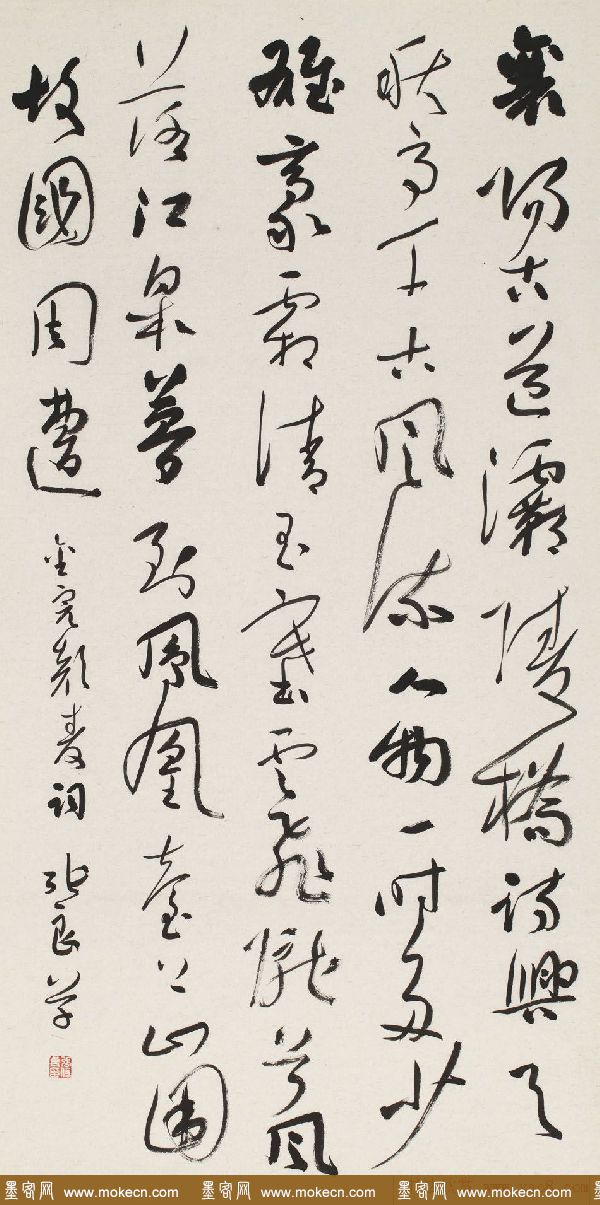 襄陽古道灞陵橋詩興与
秋高千古風流人物一時多少
雄豪霜清玉塞雲飛隴首風
落江皋夢到鳳凰臺上山圍
故國周遭 金完顏璹詞 張良草
墨客网 www.mokecn.com 墨客网 www.mokecn.com 墨客网 www.mokecn.com